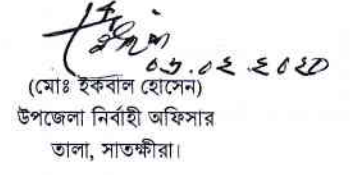 ০৬.০২.২০২০
(মোঃ ইকবাল হোসেন)
উপজেলা নির্বাহী অফিসার
তালা, সাতক্ষীরা।